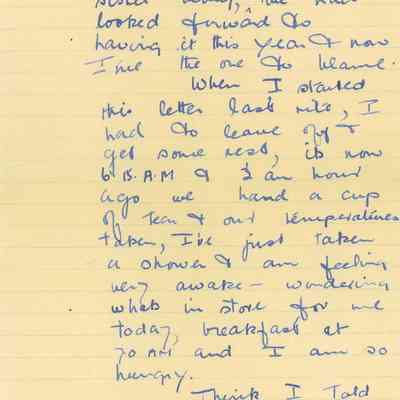 looked forward to
having it this year & now
I'me the one to blame.
When I started
this letter last nite, I
had to leave off &
get some rest, its now
6.15. A.M & ½ an hour
ago we hand a cup
of Tea & our temperatures
taken, I've just taken
a shower & am feeling
very awake — wondering
whats in store for me
today, breakfast at
70 AM and I am so
hungry.
Think I Told